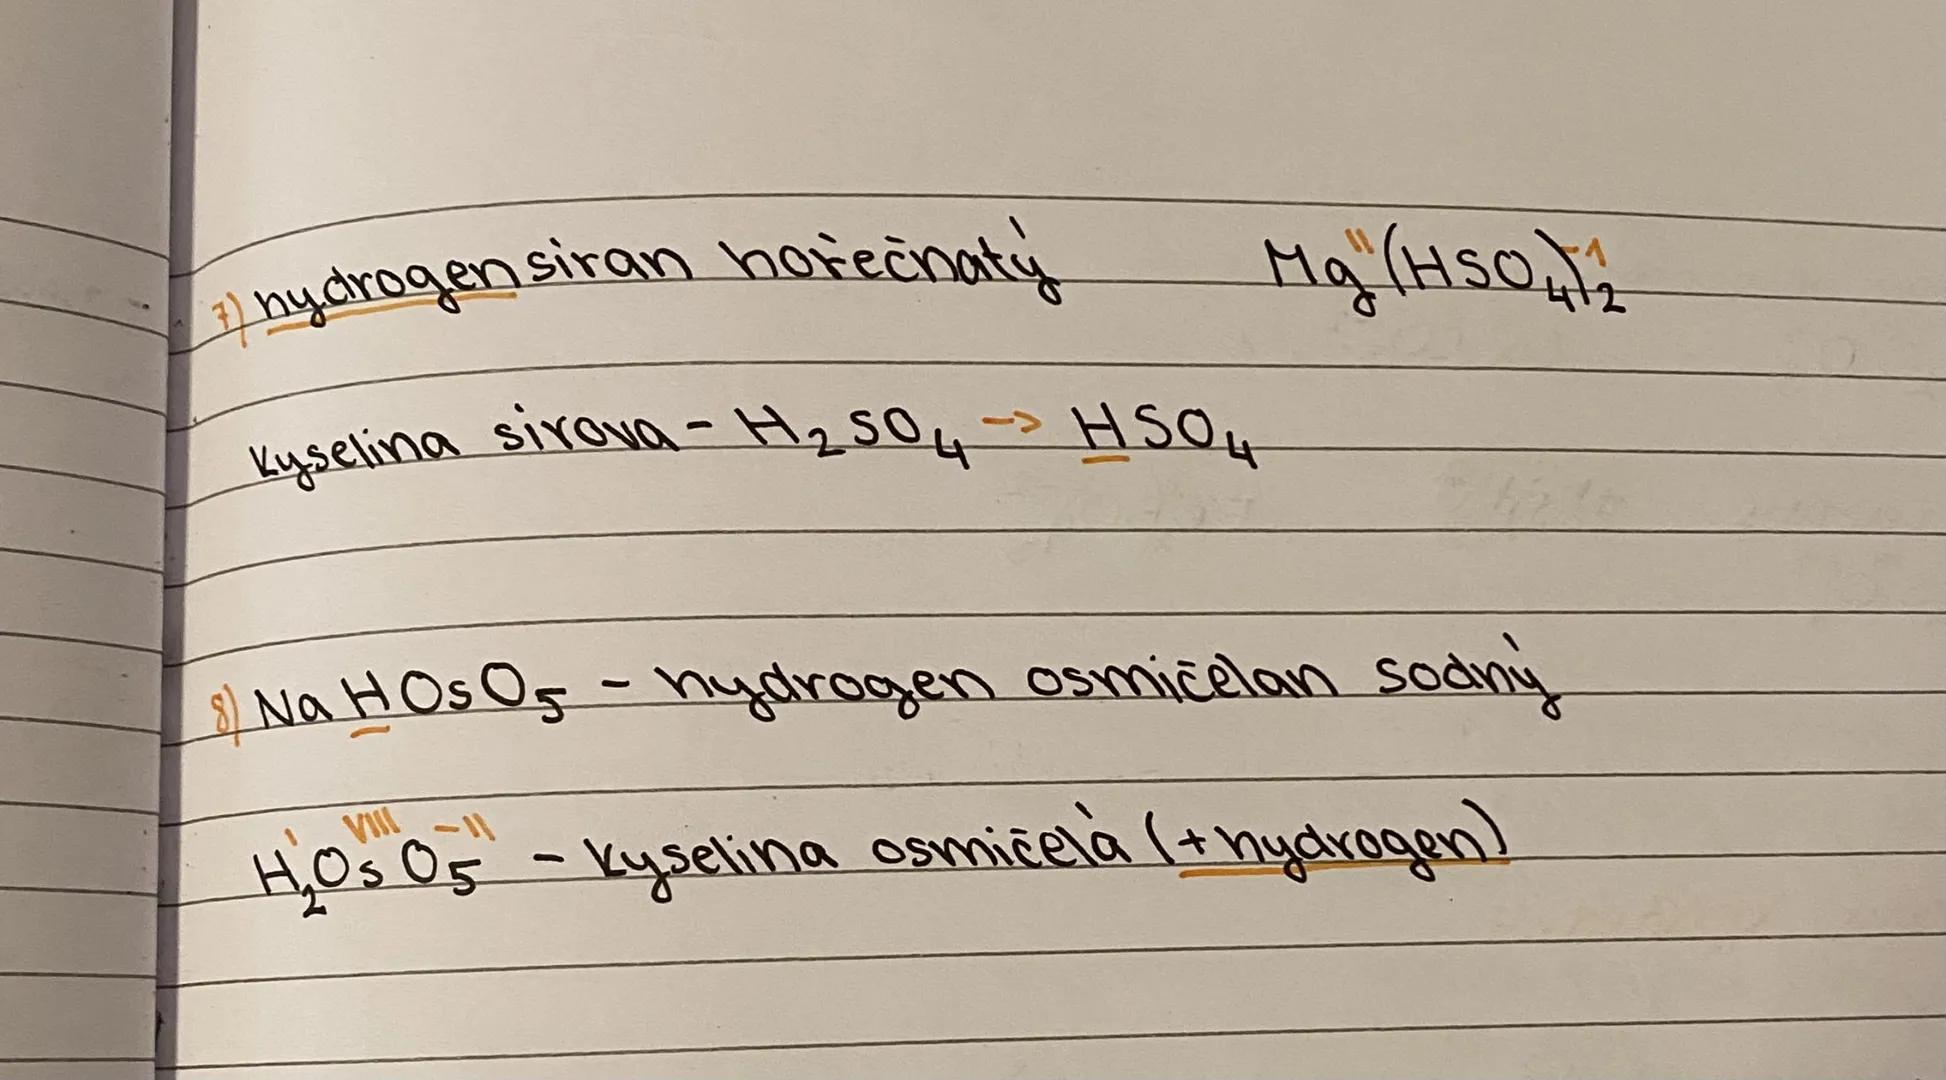 7) hydrogensiran hořečnatý Mg^II(HSO₄)₂^-1
kyselina sirova - H₂SO₄ -> HSO₄
8) NaHOsO₅ - hydrogen osmičelan sodný
H₂^IOs^VIIIO₅^-II - kyselina osmičelá (+ hydrogen)